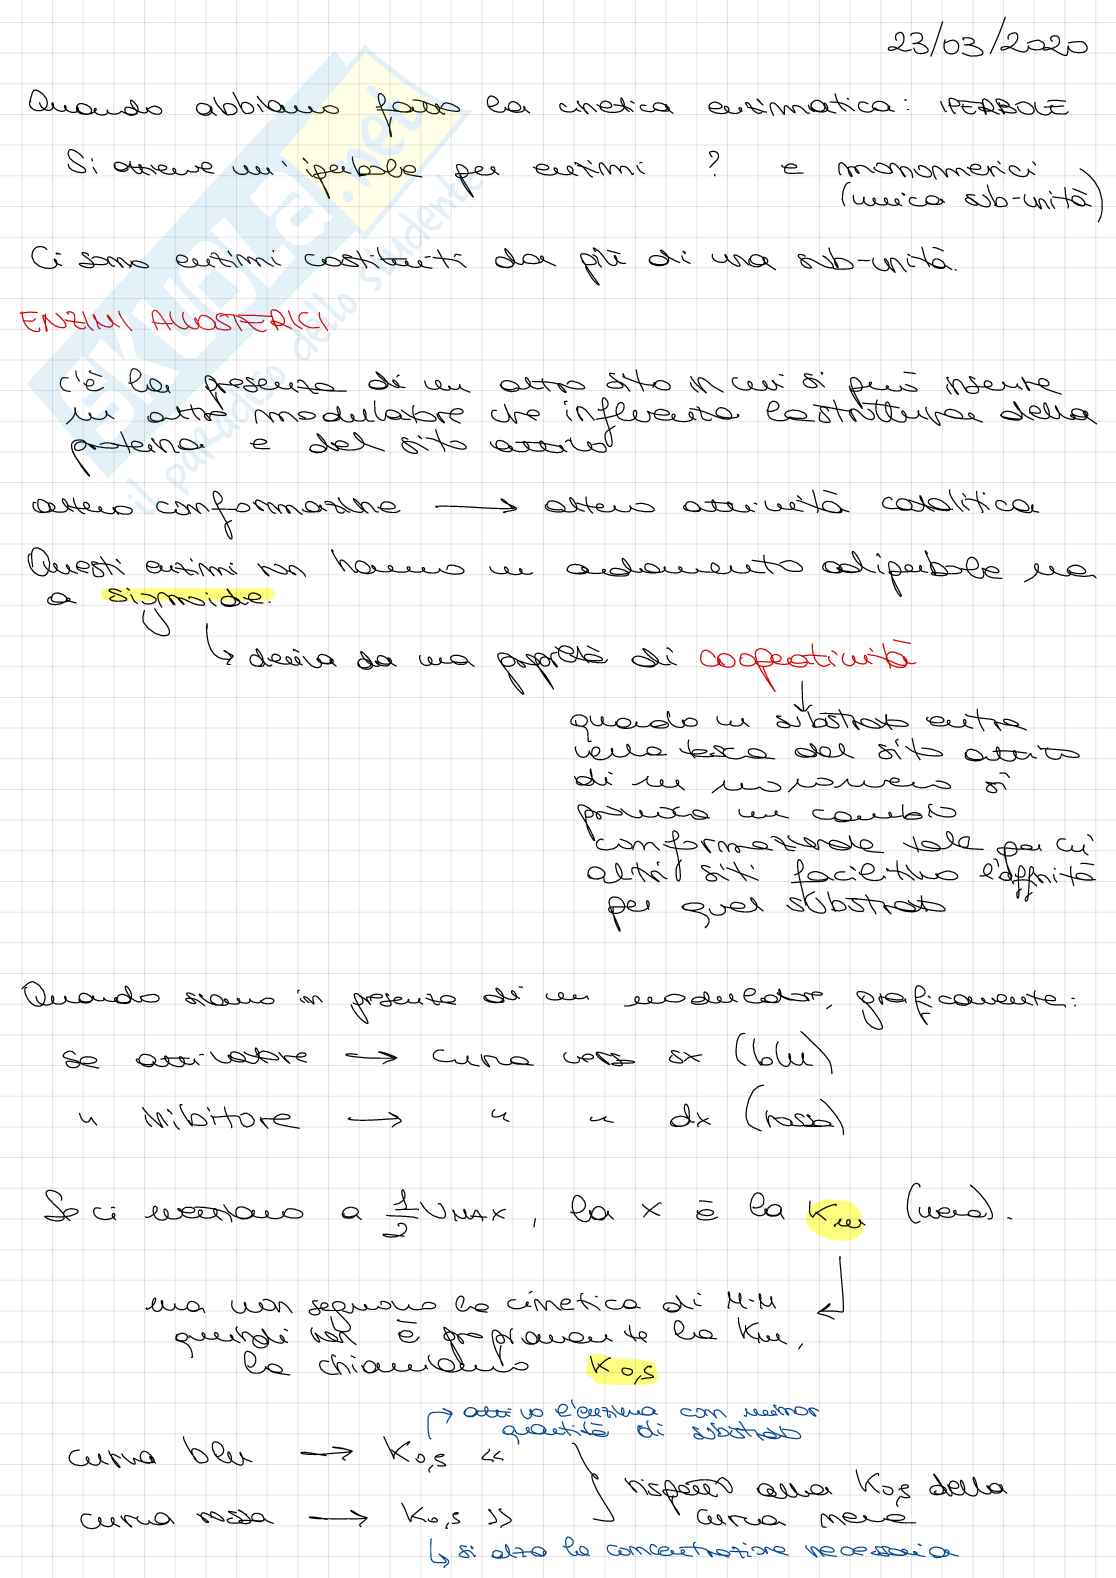 23/03/2020
Quando abbiamo fatto la cinetica enzimatica: IPERBOLE
Si ottiene un' iperbole per enzimi ? e monomerici
(unica sub-unità)
Ci sono enzimi costituiti da più di una sub-unità.
ENZIMI ALLOSTERICI
c'è la presenza di un altro sito in cui si può inserire
un altro modulatore che influenza la struttura della
proteina e del sito attivo
altero conformazione → altero attività catalitica
Questi enzimi non hanno un andamento ad iperbole ma
a sigmoide.
↳ deriva da una proprietà di cooperatività
↓
quando un substrato entra
nella tasca del sito attivo
di un monomero si
provoca un cambio
conformazionale tale per cui
altri siti facilitino l'affinità
per quel substrato
Quando siamo in presenza di un modulatore, graficamente:
se attivatore → curva verso sx (blu)
" inibitore → " " dx (rossa)
Se ci mettiamo a 1/2 VMAX, la x è la Km (nera).
ma non seguono la cinetica di M-M
quindi non è propriamente la Km,
la chiamiamo K0,5
→ attivo l'enzima con minor
quantità di substrato
curva blu → K0,5 <<
curva rossa → K0,5 >>
} rispetto alla K0,5 della
curva nera
↳ si alza la concentrazione necessaria
SKUOLA.net
il paradiso dello studente